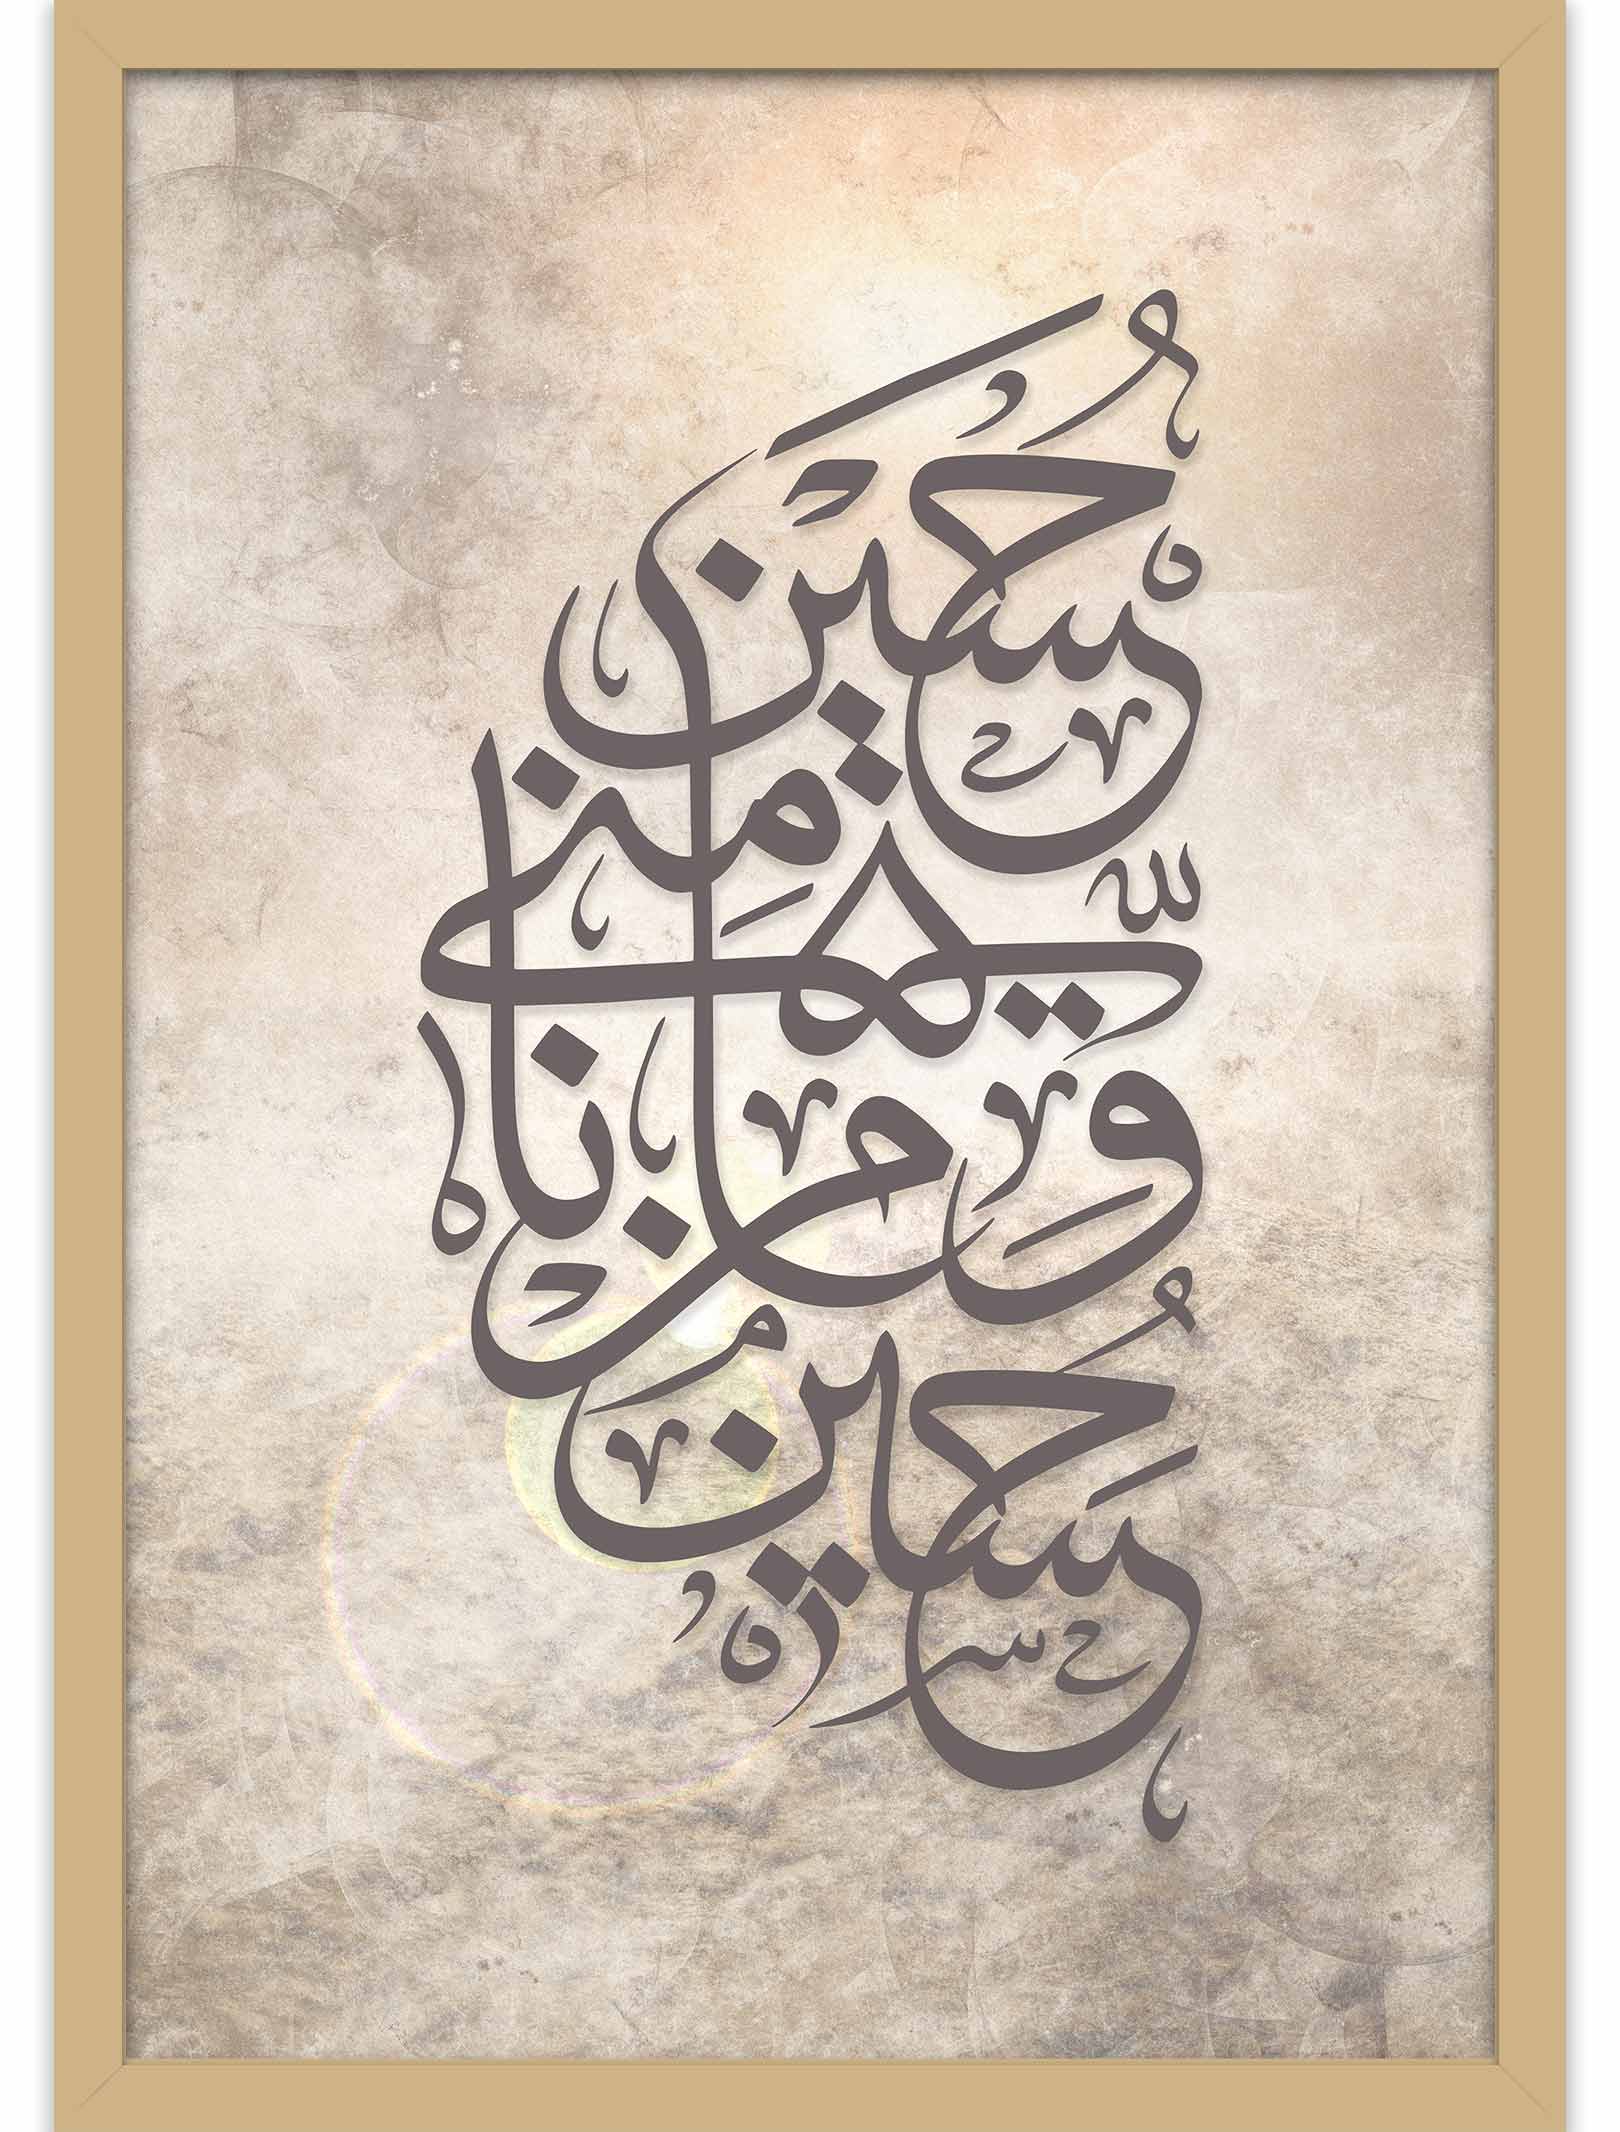 حُسَيْنٌ
مِنِّي
وَأَنَا مِنْ
حُسَيْنٍ